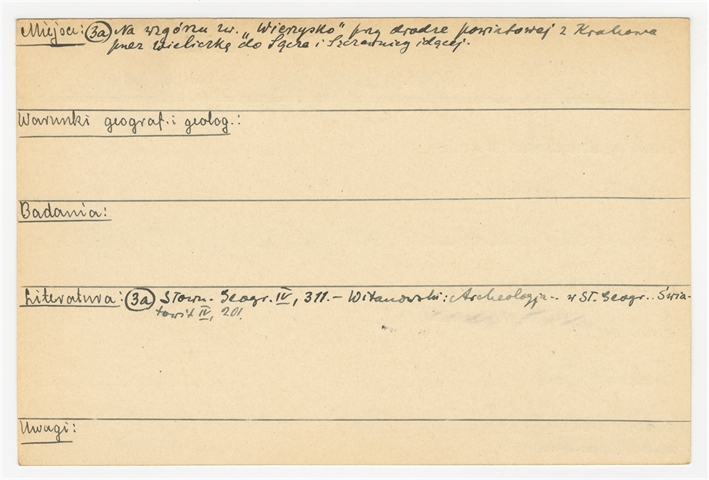 Miejsce: (3a) Na wzgórzu zw. „Wierzysko” przy drodze powiatowej z Krakowa
przez Wieliczkę do Sącza i Szczawnicy idącej.
Warunki geograf. i geolog.:
Badania:
Literatura: (3a) Słown. Geogr. IV, 311. – Witanowski: Archeologja.. w Sł. Geogr.. Świa-
towit IV, 201.
Uwagi: